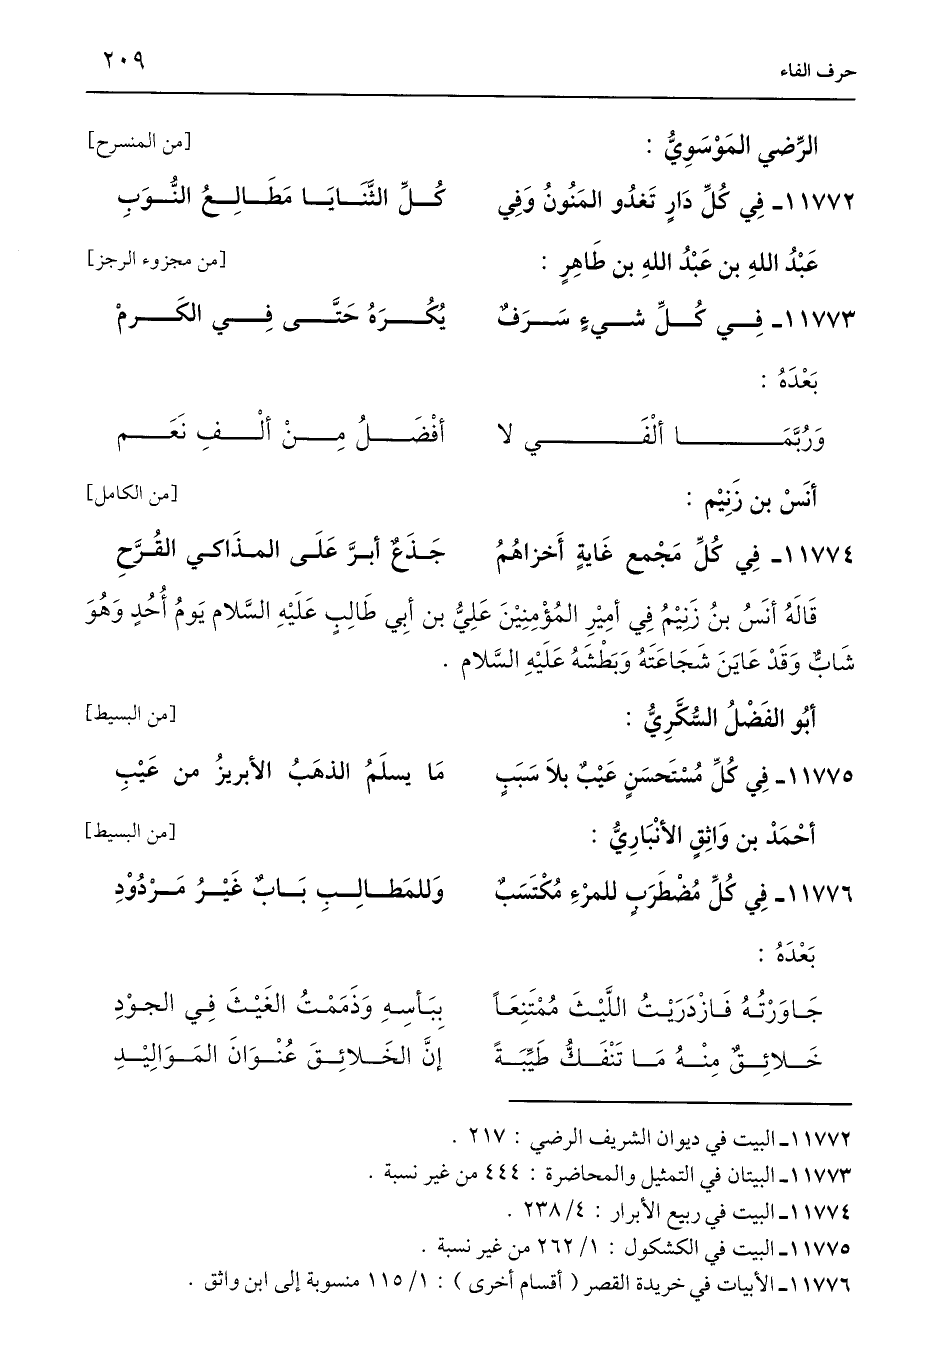 حرف الفاء ٢٠٩
الرِّضي المَوْسَوِيُّ : [من المنسرح]
١١٧٧٢ـ فِي كُلِّ دَارٍ تَغدُو المَنُونُ وَفِي كُــلِّ الثَّنَايَــا مَطَــالِــعُ النُّــوَبِ
عَبْدُ اللهِ بن عَبْدُ اللهِ بن طَاهِرٍ : [من مجزوء الرجز]
١١٧٧٣ـ فِــي كُــلِّ شــيءٍ سَــرَفٌ يُكْــرَهُ حَتَّــى فِــي الكَــرمْ
بَعْدَهُ :
وَرُبَّمَــا ألْفَــي لا أفْضَــلُ مِــنْ ألْــفِ نَعَــم
أنَسْ بن زَنِيْم : [من الكامل]
١١٧٧٤ـ فِي كُلِّ مَجْمعِ غَايةٍ أَخزاهُمُ جَــذَعٌ أبـرَّ عَلَـى المـذَاكـي القُـرَّحِ
قَالَهُ أنَسُ بنُ زَنِيْمُ فِي أمِيْرِ المُؤْمِنِيْنَ عَلِيُّ بن أبِي طَالِبٍ عَلَيْهِ السَّلام يَومُ أُحُدٍ وَهُوَ
شَابٌّ وَقَدْ عَايَنَ شَجَاعَتَهُ وَبَطْشَهُ عَلَيْهِ السَّلام .
أبُو الفَضْلُ السُّكَّرِيُّ : [من البسيط]
١١٧٧٥ـ فِي كُلِّ مُسْتَحسَنٍ عَيْبٌ بلاَ سَبَبٍ مَا يسلَمُ الذهَبُ الأبريزُ من عَيْبِ
أحْمَدْ بن وَاثِقٍ الأنْبَارِيُّ : [من البسيط]
١١٧٧٦ـ فِي كُلِّ مُضْطَرَبٍ للمرْءِ مُكْتَسَبٌ وَللمَطــالِــبِ بَــابٌ غَيْــرُ مَــرْدُوْدِ
بَعْدَهُ :
جَـاوَرْتُـهُ فَـازْدَرَيْـتُ اللَّيْـثَ مُمْتَنِعَـاً بِبَـأسِـهِ وَذَمَمْـتُ الغَيْـثَ فِـي الجـوْدِ
خَــلائِــقٌ مِنْــهُ مَــا تَنْفَــكُّ طَيِّبَــةً إنَّ الخَــلائِــقَ عُنْــوَانَ المَــوَالِيْــدِ
١١٧٧٢ـ البيت في ديوان الشريف الرضي : ٢١٧ .
١١٧٧٣ـ البيتان في التمثيل والمحاضرة : ٤٤٤ من غير نسبة .
١١٧٧٤ـ البيت في ربيع الأبرار : ٤/ ٢٣٨ .
١١٧٧٥ـ البيت في الكشكول : ١/ ٢٦٢ من غير نسبة .
١١٧٧٦ـ الأبيات في خريدة القصر ( أقسام أخرى ) : ١/ ١١٥ منسوبة إلى ابن واثق .